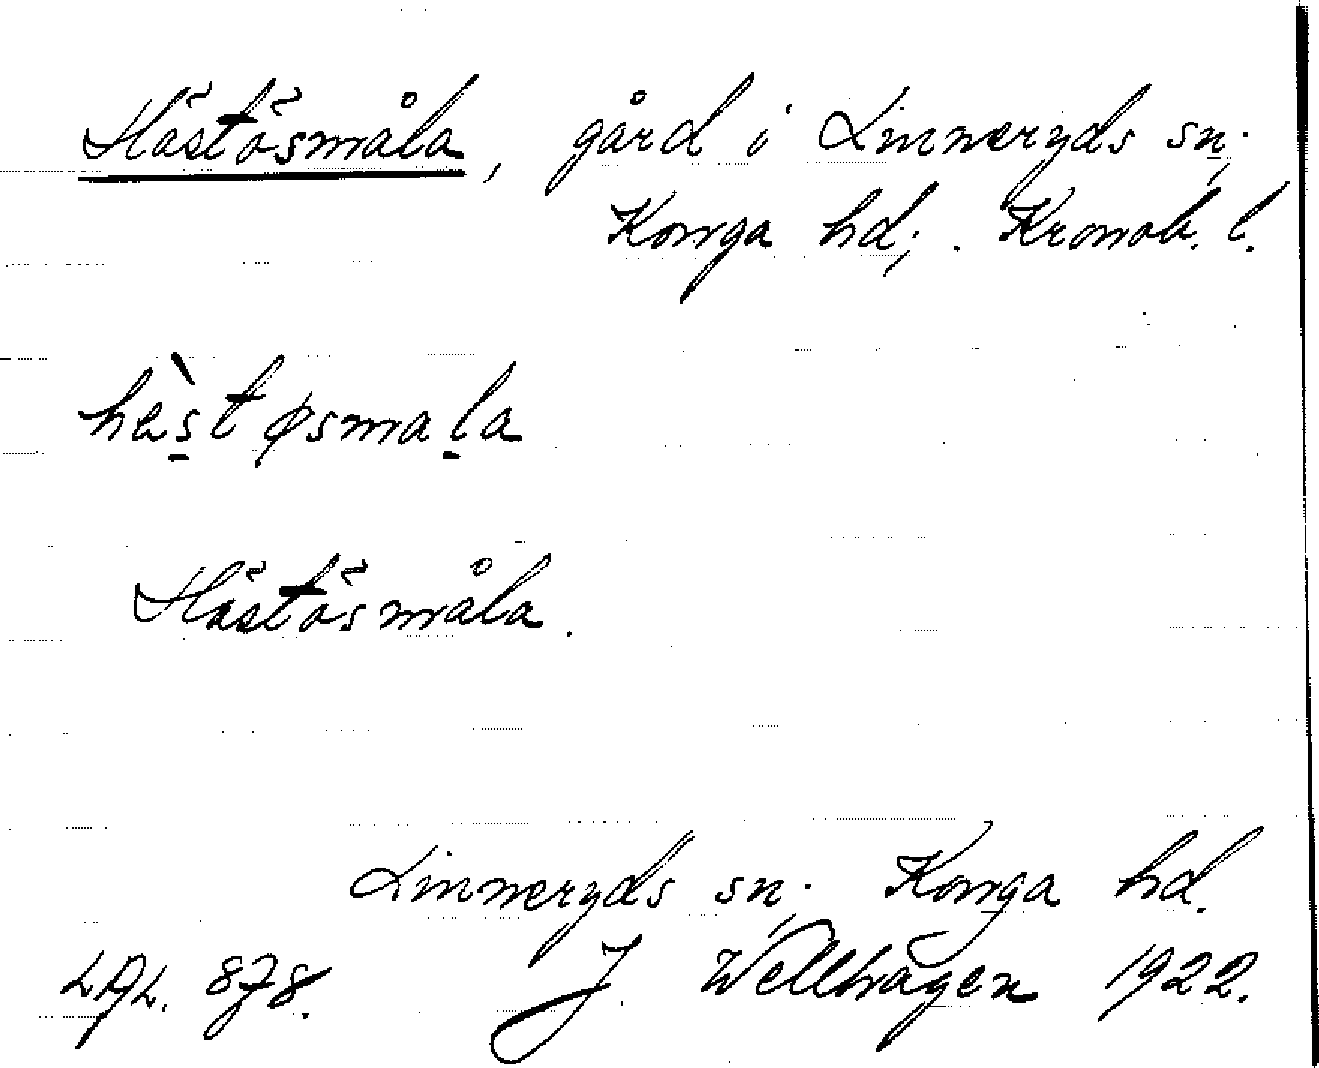 Hästösmåla, gård i Linneryds sn;
Konga hd; Kronob. l.
hæ̀støsmala
Hästösmåla.
Linneryds sn; Konga hd.
LAL. 878. J. Wellhagen 1922.